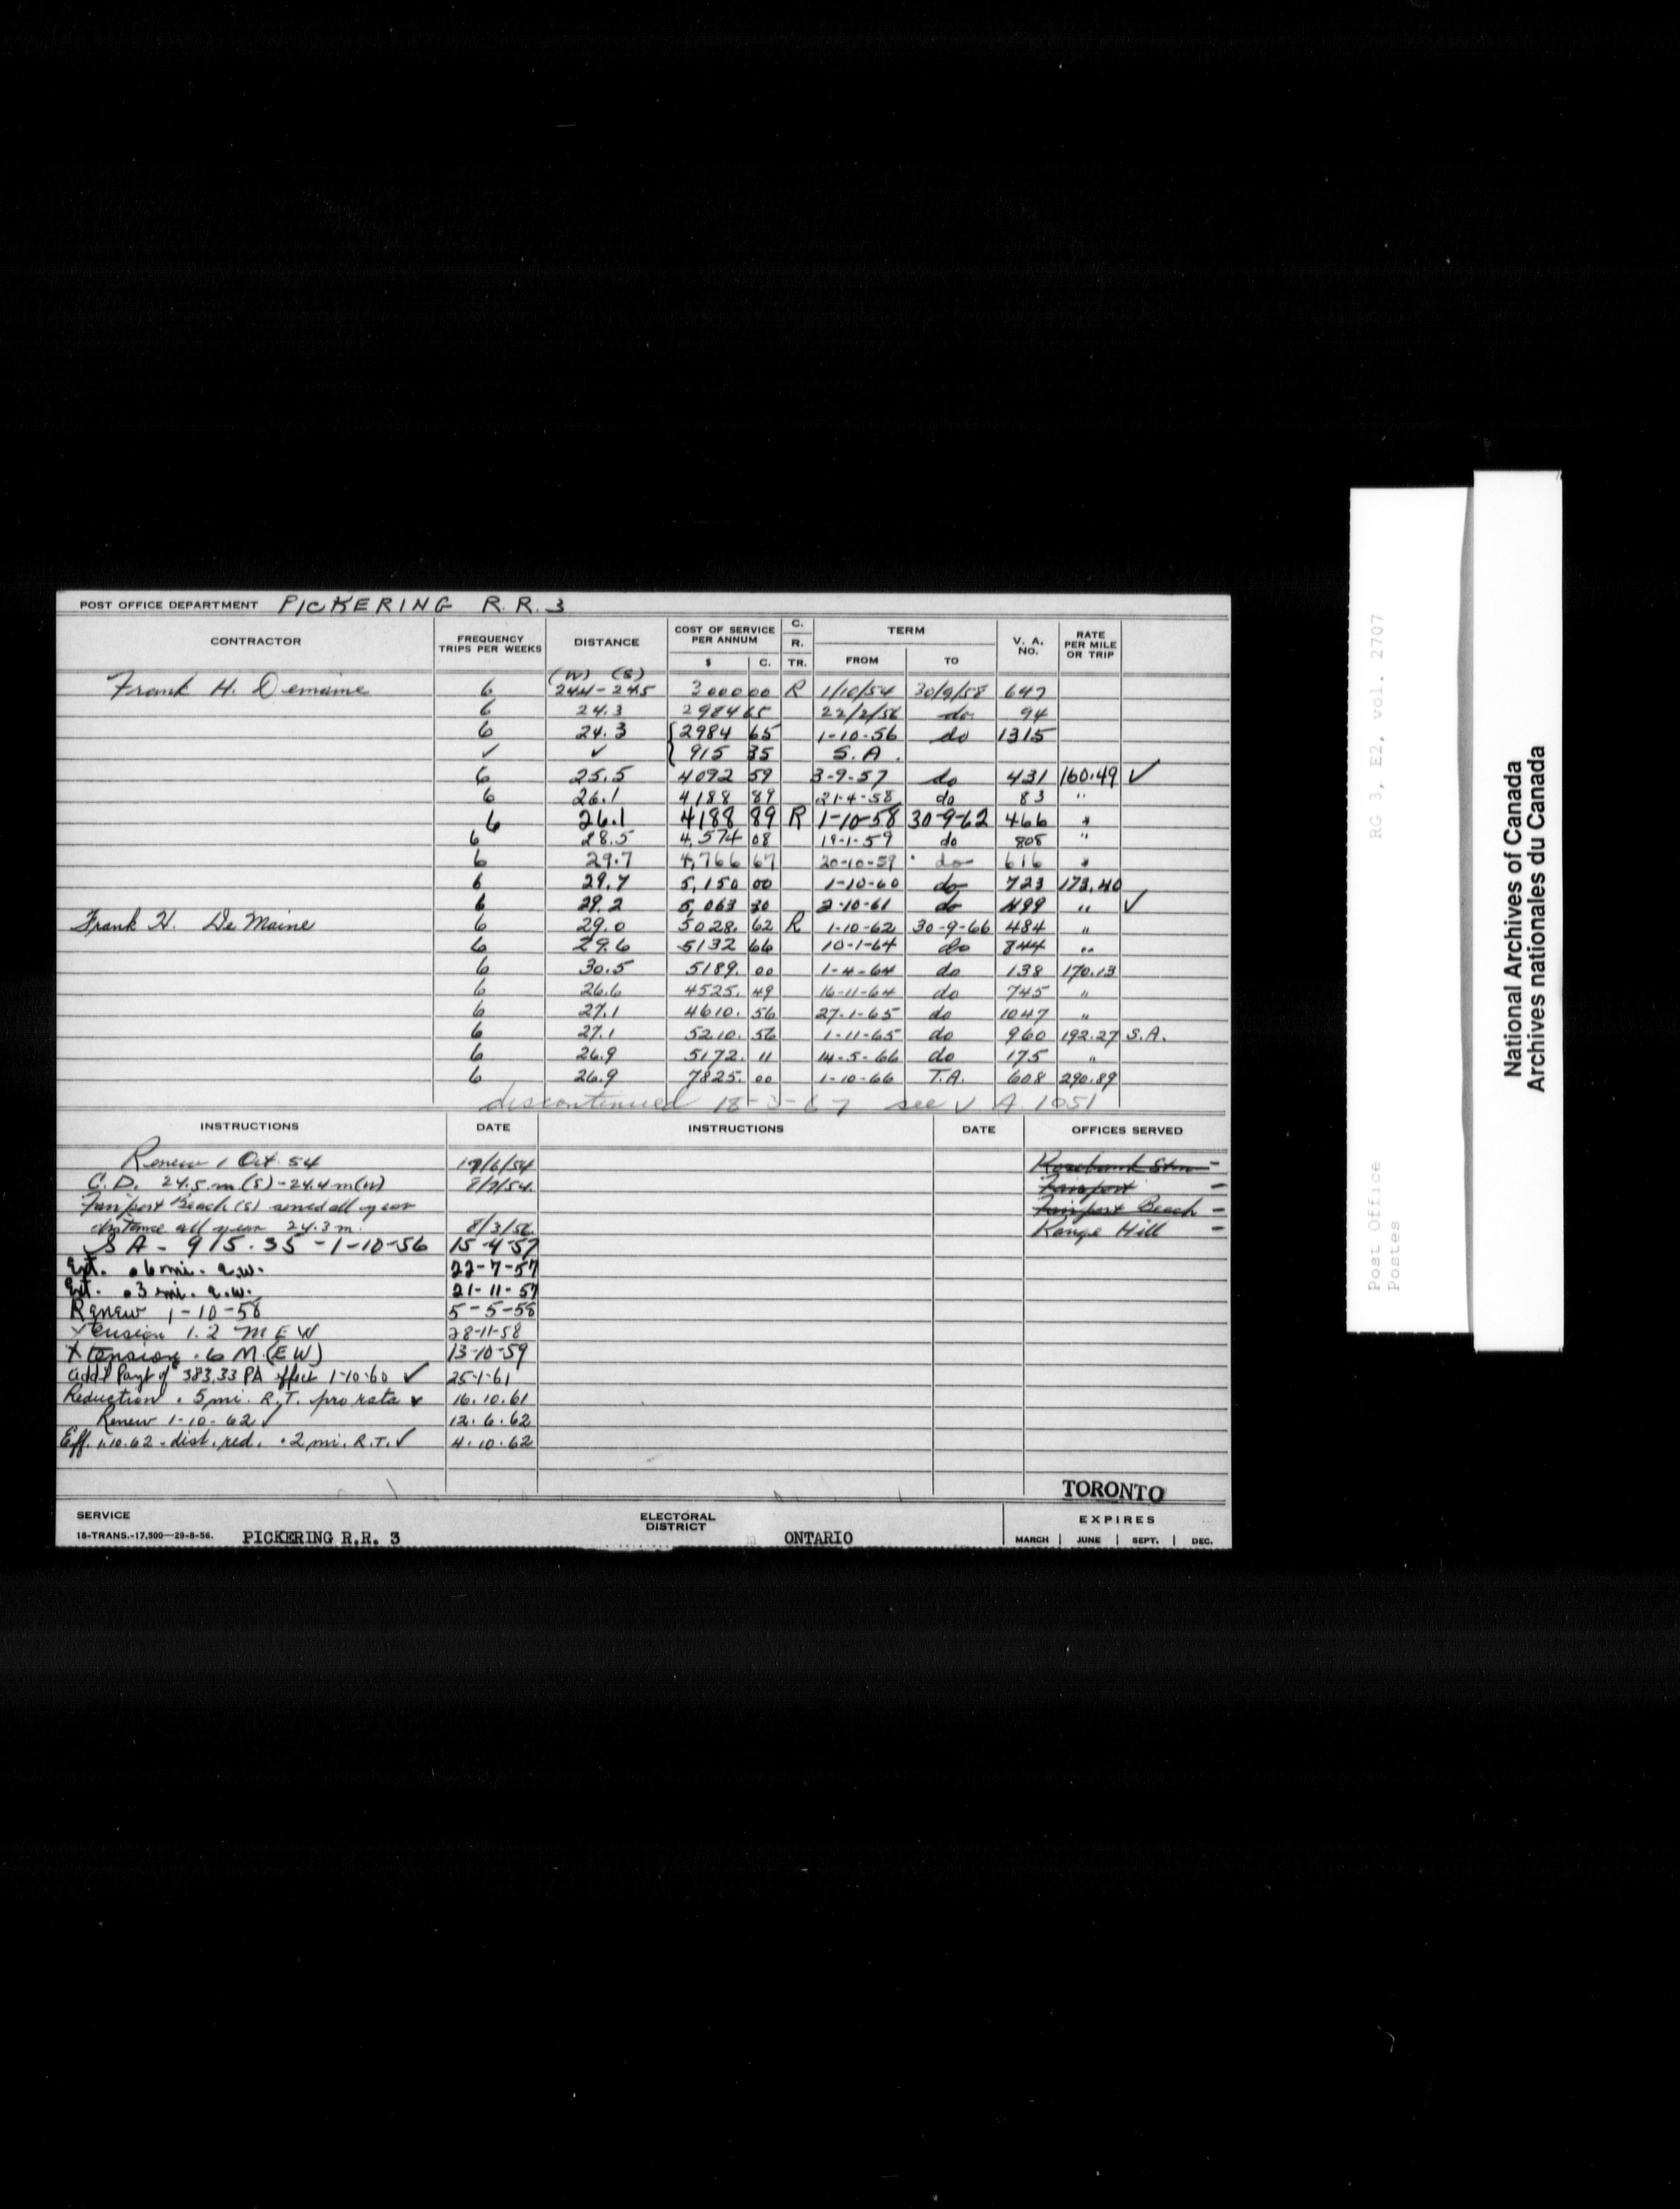 POST OFFICE DEPARTMENT PICKERING R.R. 3
CONTRACTOR FREQUENCY TRIPS PER WEEKS DISTANCE COST OF SERVICE PER ANNUM $ C. C. R. TR. TERM FROM TO V. A. NO. RATE PER MILE OR TRIP
(W) (S)
Frank H. Demaine 6 24.4 - 24.5 3000 00 R 1/10/54 30/9/58 647
6 24.3 2984 65 22/2/56 do 94
6 24.3 2984 65 1-10-56 do 1315
✓ ✓ 915 35 S.A.
6 25.5 4092 59 3-9-57 do 431 160.49 ✓
6 26.1 4188 89 21-4-58 do 83 "
6 26.1 4188 89 R 1-10-58 30-9-62 466 "
6 28.5 4,574 08 19-1-59 do 808 "
6 29.7 4,766 67 20-10-59 do 616 "
6 29.7 5,150 00 1-10-60 do 723 173.40
6 29.2 5,063 30 2-10-61 do 499 " ✓
Frank H. De Maine 6 29.0 5028. 62 R 1-10-62 30-9-66 484 "
6 29.6 5132 66 10-1-64 do 844 "
6 30.5 5189. 00 1-4-64 do 138 170.13
6 26.6 4525. 49 16-11-64 do 745 "
6 27.1 4610. 56 27-1-65 do 1047 "
6 27.1 5210. 56 1-11-65 do 960 192.27 S.A.
6 26.9 5172. 11 14-5-66 do 175 "
6 26.9 7825. 00 1-10-66 T.A. 608 290.89
discontinued 18-3-67 see V A 1051
INSTRUCTIONS DATE INSTRUCTIONS DATE OFFICES SERVED
Renew 1 Oct. 54 17/6/54 Rosebank Stn -
C.D. 24.5 m (S) - 24.4 m (W) 8/7/54 Fairport -
Fairport Beach (S) served all year Fairport Beach -
distance all year 24.3 m. 8/3/56 Range Hill -
S A - 915.35 - 1-10-56 15-4-57
Ext. .6 mi. e.w. 22-7-57
Ext. .3 mi. e.w. 21-11-57
Renew 1-10-58 5-5-58
Xtension 1.2 M E W 28-11-58
Xtension .6 M. (E W) 13-10-59
Add'l Payt of 383.33 PA effect 1-10-60 ✓ 25-1-61
Reduction .5 mi. R.T. pro rata ✓ 16.10.61
Renew 1-10-62 ✓ 12.6.62
Eff. 1.10.62 - dist. red. .2 mi. R.T. ✓ 4.10.62
TORONTO
SERVICE ELECTORAL DISTRICT EXPIRES
18-TRANS.-17,500—29-8-56. PICKERING R.R. 3 ONTARIO MARCH JUNE SEPT. DEC.
Post Office RG 3, E2, vol. 2707
Postes
National Archives of Canada
Archives nationales du Canada